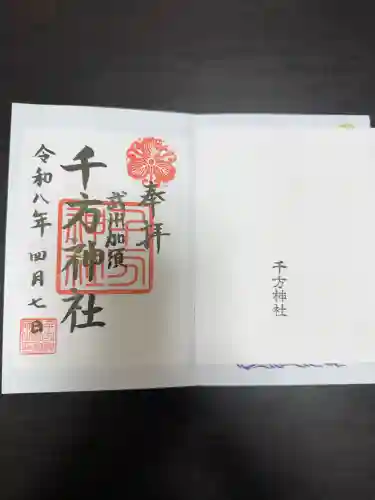 奉拝
武州加須
千方神社
令和八年 四月七日
千方神社